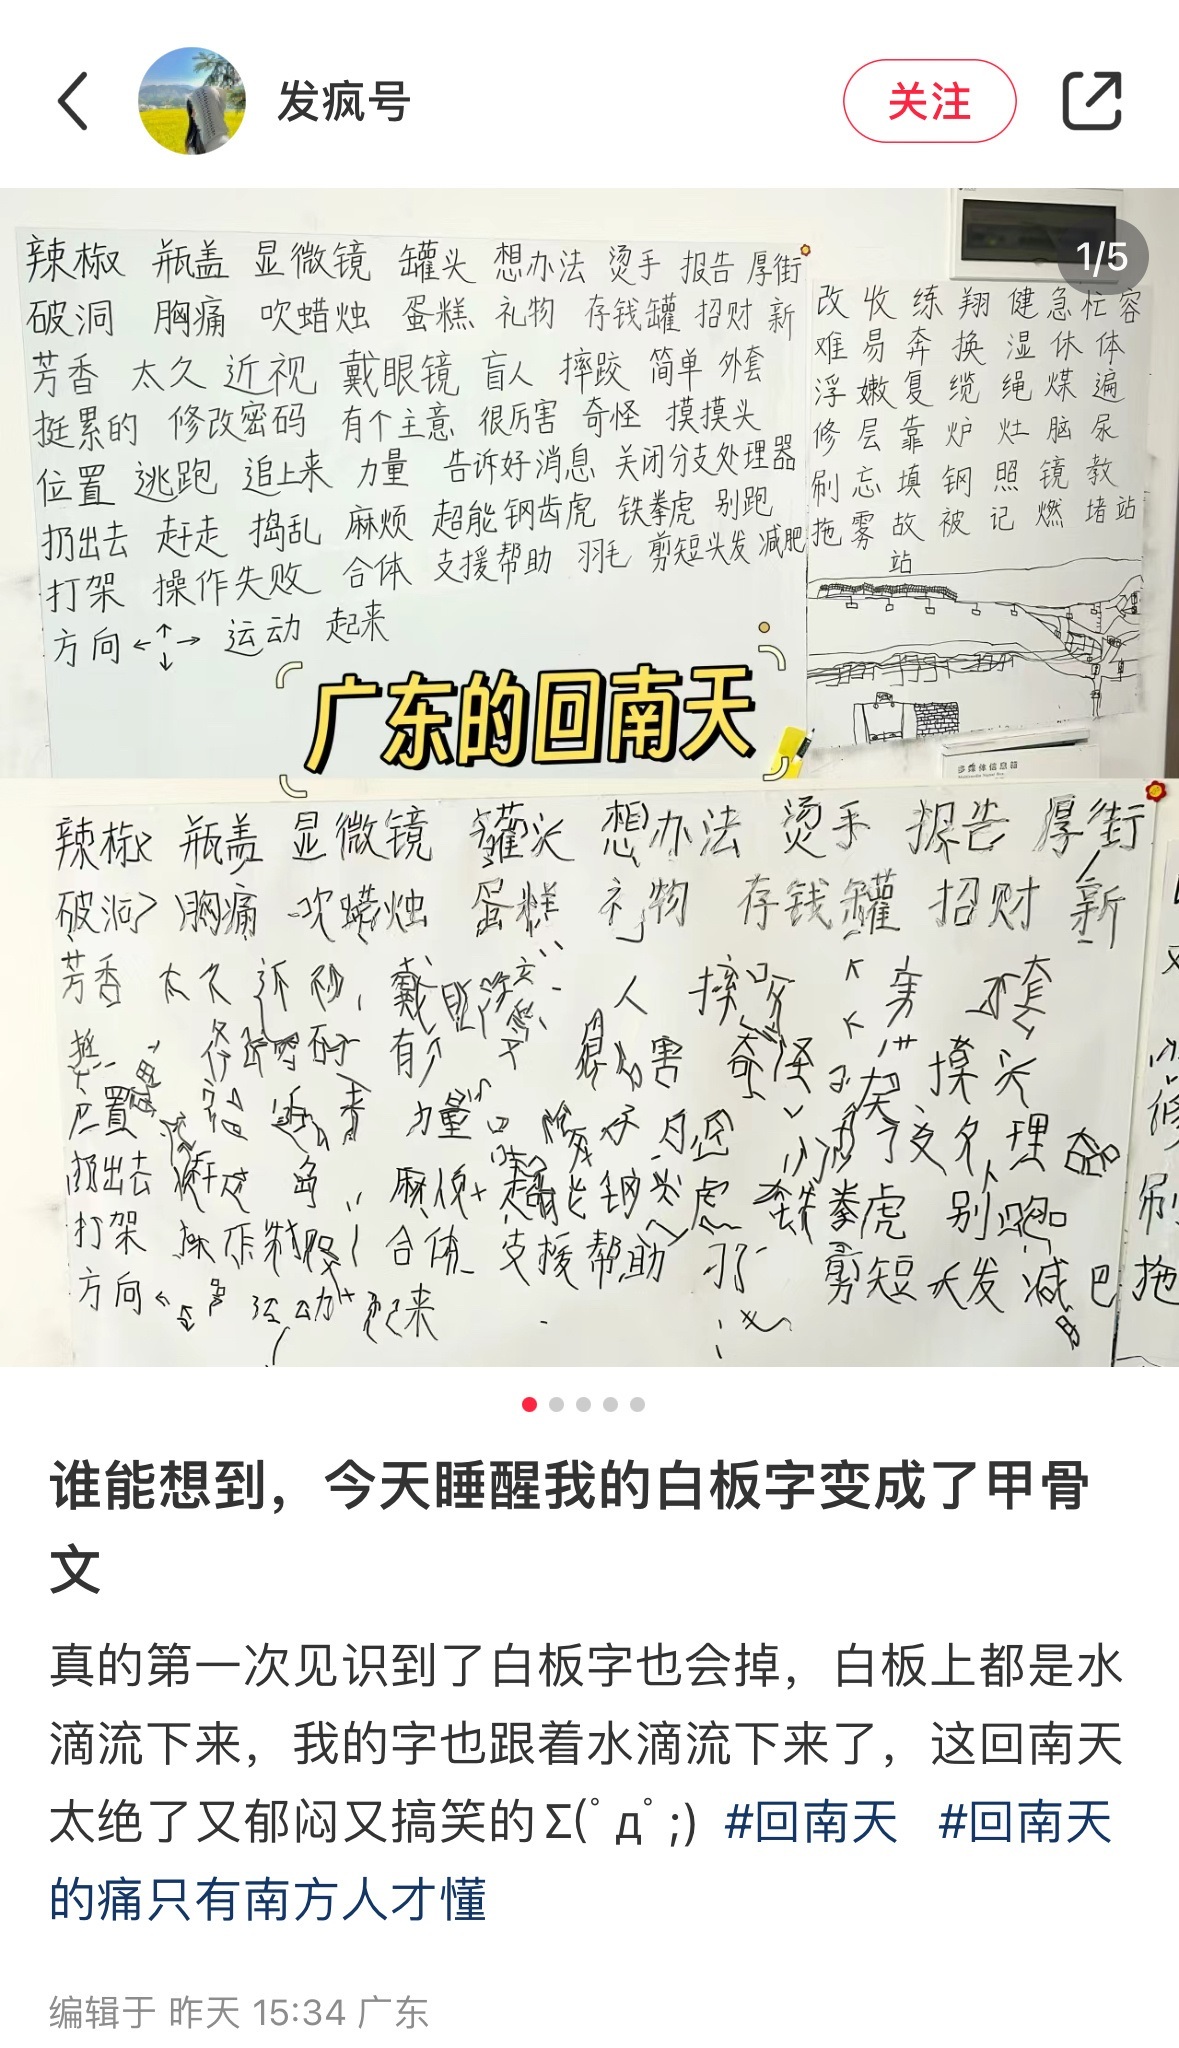 发疯号
关注
1/5
辣椒 瓶盖 显微镜 罐头 想办法 烫手 报告 厚街
破洞 胸痛 吹蜡烛 蛋糕 礼物 存钱罐 招财 新
芳香 太久 近视 戴眼镜 盲人 摔跤 简单 外套
挺累的 修改密码 有个主意 很厉害 奇怪 摸摸头
位置 逃跑 追上来 力量 告诉好消息 关闭分支处理器
扔出去 赶走 捣乱 麻烦 超能钢齿虎 铁拳虎 别跑
打架 操作失败 合体 支援帮助 羽毛 剪短头发 减肥
方向←↑↓→ 运动 起来
改 收 练 翔 健 急 忙 容
难 易 奔 换 湿 休 体
浮 嫩 复 缆 绳 煤 遍
修 层 靠 炉 灶 脑 尿
刷 忘 填 钢 照 镜 教
拖 雾 故 被 记 燃 堵 站
站
广东的回南天
多媒体信息箱
辣椒 瓶盖 显微镜 罐头 想办法 烫手 报告 厚街
破洞 胸痛 吹蜡烛 蛋糕 礼物 存钱罐 招财 新
芳香 太久 戴 人 摔 套
有 害 奇怪 摸头
置 力量 理
扔出去 麻 虎 拳虎 别跑
打架 操作 合体 支援帮助 剪短 发 减
方向 动 起来
刷
拖
谁能想到，今天睡醒我的白板字变成了甲骨
文
真的第一次见识到了白板字也会掉，白板上都是水
滴流下来，我的字也跟着水滴流下来了，这回南天
太绝了又郁闷又搞笑的Σ(ﾟдﾟ;) #回南天 #回南天
的痛只有南方人才懂
编辑于 昨天 15:34 广东